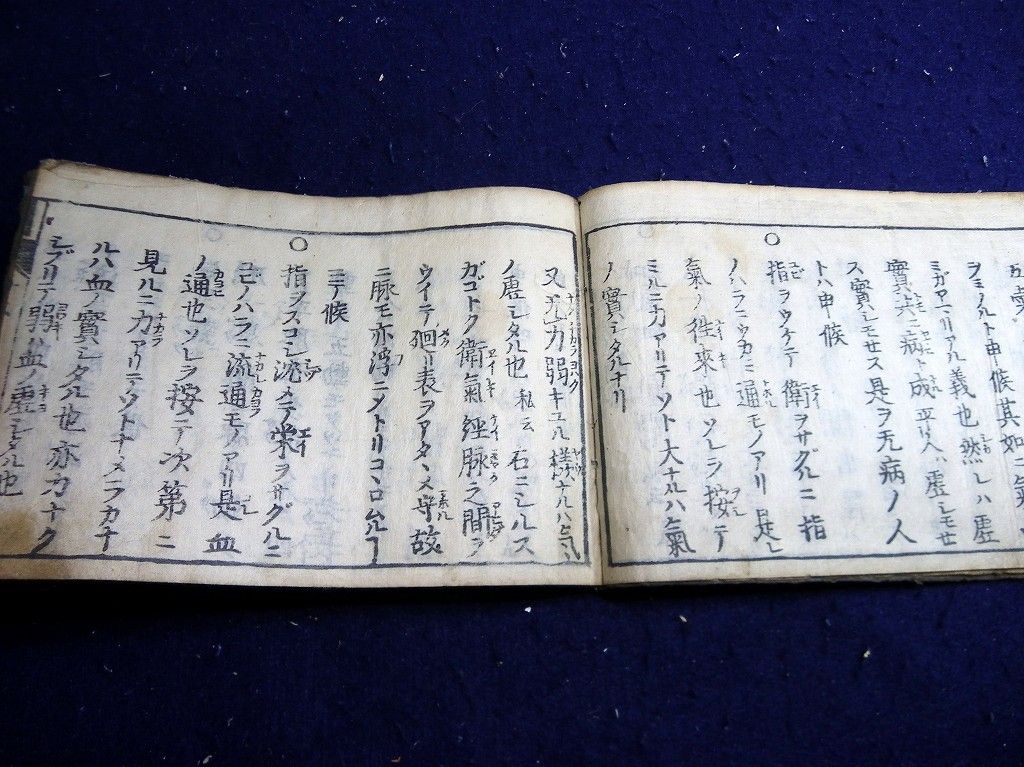 ヲミノルト申候其如ニ氣
ミガアマリアル義也然レハ虚
實共ニ病ト成平リ人ハ虚シモセ
ス實シモセス是ヲ无病ノ人
トハ申候
○指ヲウケテ衛ヲサグルニ指
ノハラニウカミ通モノアリ是レ
氣ノ往來也ソレヲ按テ
ミルニ力アリテソト大ナルハ氣
ノ實シタルナリ
又尤力弱キユル様ナルハ
ノ虚シタル也私云石ニシルス
ガゴトク衛氣經脉之間ヲ
ウイテ廻リ表ヲアタヽメ守故
ニ脉モ亦浮ニメトリコヽロム
ミテ候
○指ヲスコシ沈メテ栄ヲサグルニ
ユビノハラニ流通モノアリ是血
ノ通也ソレヲ按テ次第ニ
見ルニ力アリテソトナメラカナ
ルハ血ノ實シタル也亦力ナク
シブリテ弱ハ血ノ虚シタル也